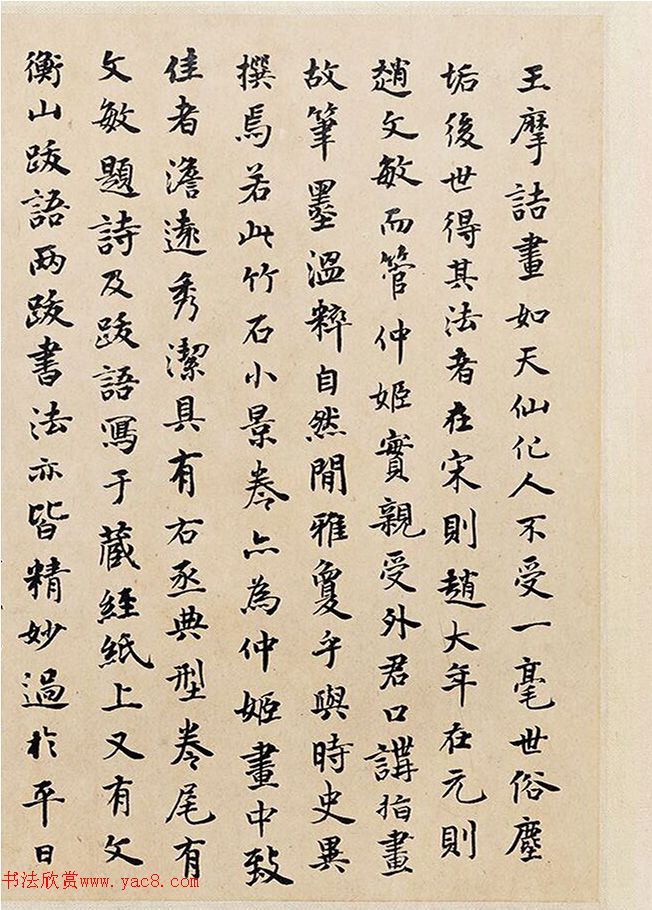 王摩詰畫如天仙化人不受一毫世俗塵
垢後世得其法者在宋則趙大年在元則
趙文敏而管仲姬實親受外君口講指畫
故筆墨溫粹自然閒雅敻乎與時史異
撰焉若此竹石小景卷亦為仲姬畫中致
佳者澹遠秀潔具有右丞典型卷尾有
文敏題詩及跋語寫于藏經紙上又有文
衡山跋語兩跋書法亦皆精妙過於平日
书法欣赏www.yac8.com